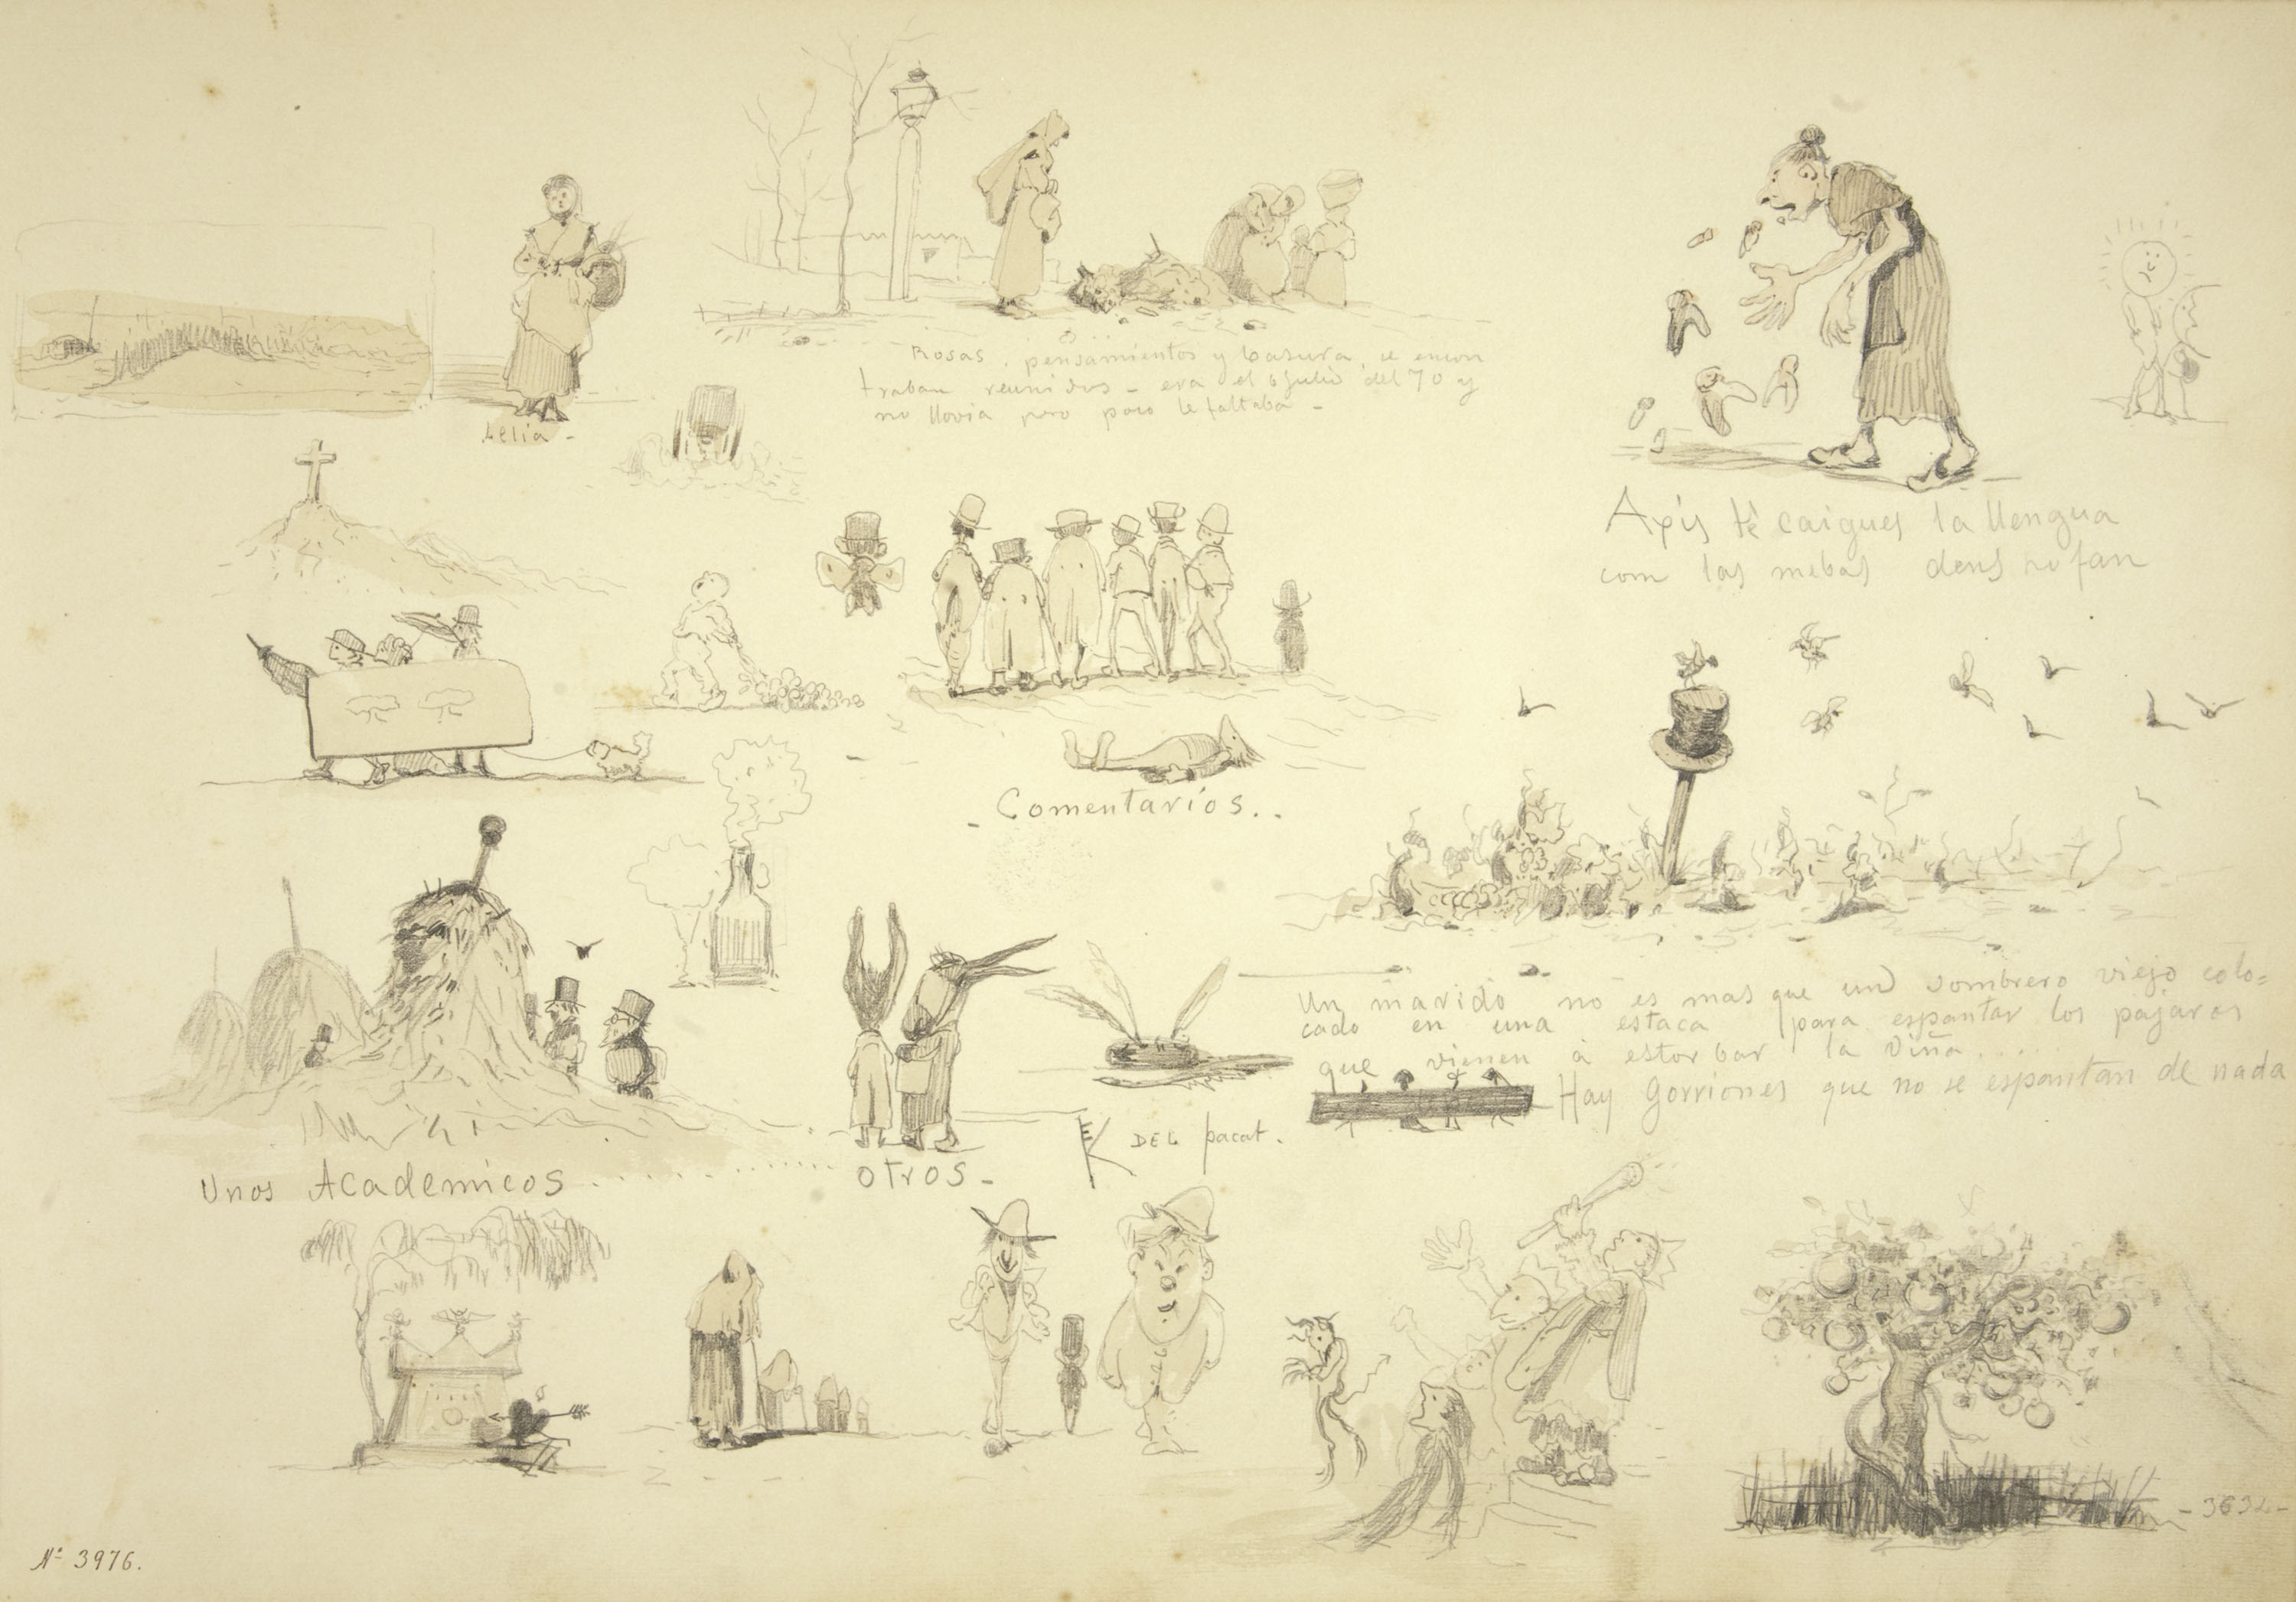 Lelia -
Rosas, pensamientos y basura, se encon
traban reunidos - era el 6 Julio del 70 y
no llovia pero poco le faltaba -
Axis te caigues la llengua
com las mebas dens ho fan
- Comentarios. .
Un marido no es mas que un sombrero viejo colo=
cado en una estaca para espantar los pajaros
que vienen à estorbar la viña....
Hay Gorriones que no se espantan de nada
DEL pacat.
Unos Academicos ............ otros -
- 3632 -
Nº 3976.